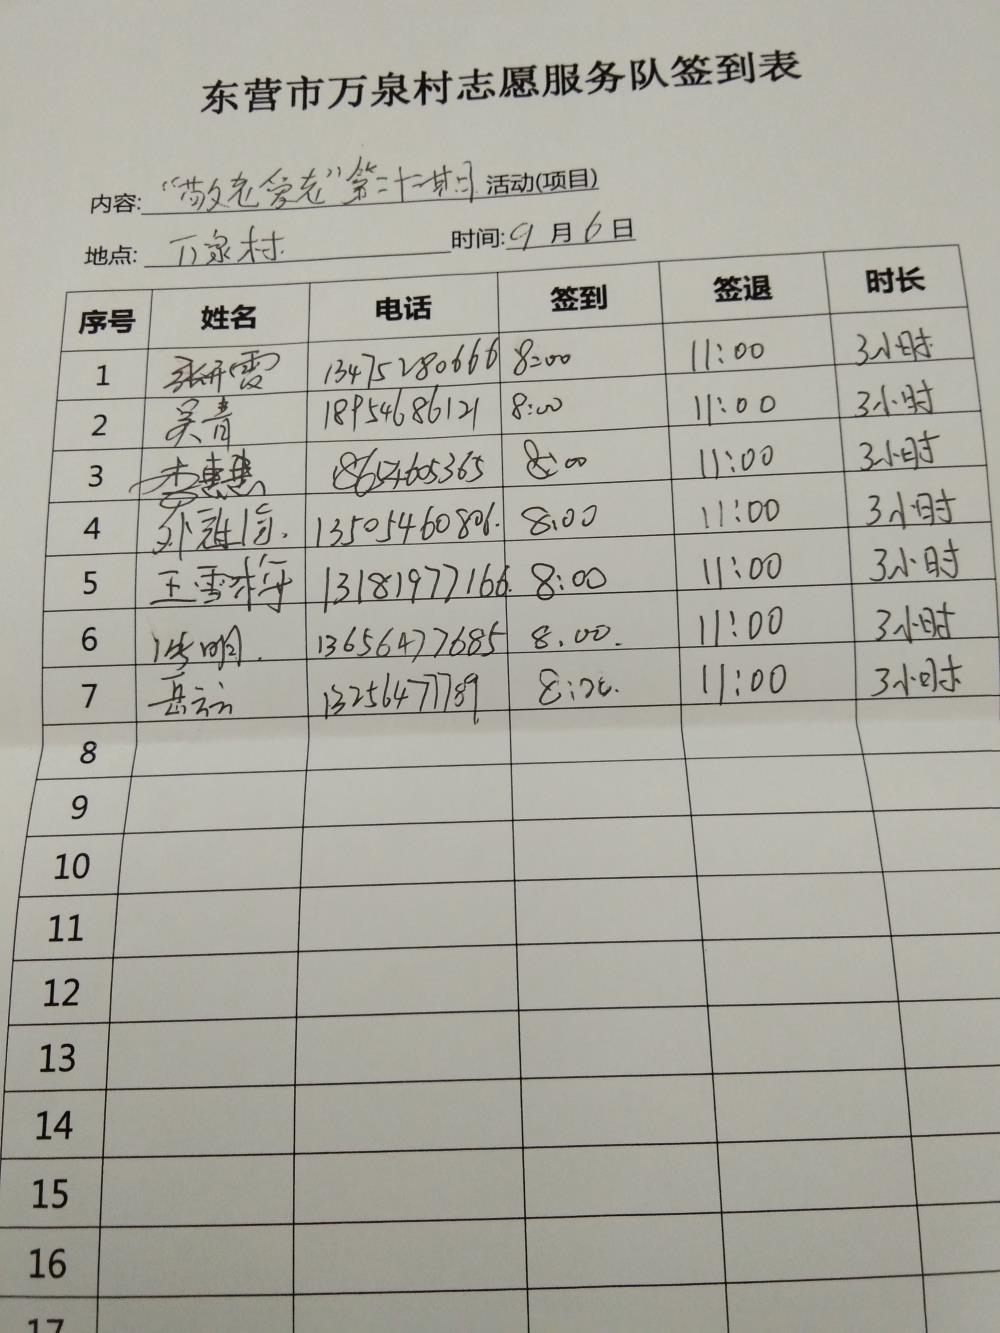 东营市万泉村志愿服务队签到表
内容:“敬老爱老”第二十二期活动(项目)
地点:万泉村 时间:9月6日
序号 姓名 电话 签到 签退 时长
1 张开霞 13475280666 8:00 11:00 3小时
2 吴青 18954686121 8:00 11:00 3小时
3 李惠惠 18654605365 8:00 11:00 3小时
4 13505460806. 8:00 11:00 3小时
5 王雪梅 13181977166. 8:00 11:00 3小时
6 13656477685 8:00. 11:00 3小时
7 岳云云 13256477789 8:00. 11:00 3小时
8
9
10
11
12
13
14
15
16
17